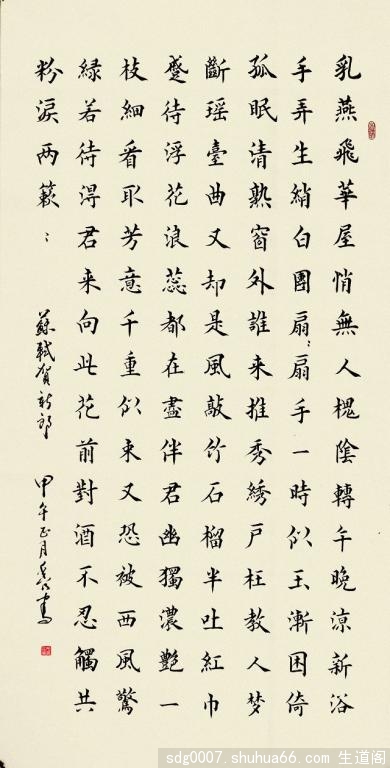 乳燕飛華屋悄無人槐陰轉午晚涼新浴
手弄生綃白團扇：扇手一時似玉漸困倚
孤眠清熟窗外誰来推秀綉戶枉教人梦
斷瑶臺曲又却是風敲竹石榴半吐紅巾
蹙待浮花浪蕊都在盡伴君幽獨濃艷一
枝細看取芳意千重似束又恐被西風驚
緑若待得君来向此花前對酒不忍觸共
粉淚两簌：蘇軾賀新郎 甲午正月書
sdg0007.shuhua66.com 生道阁